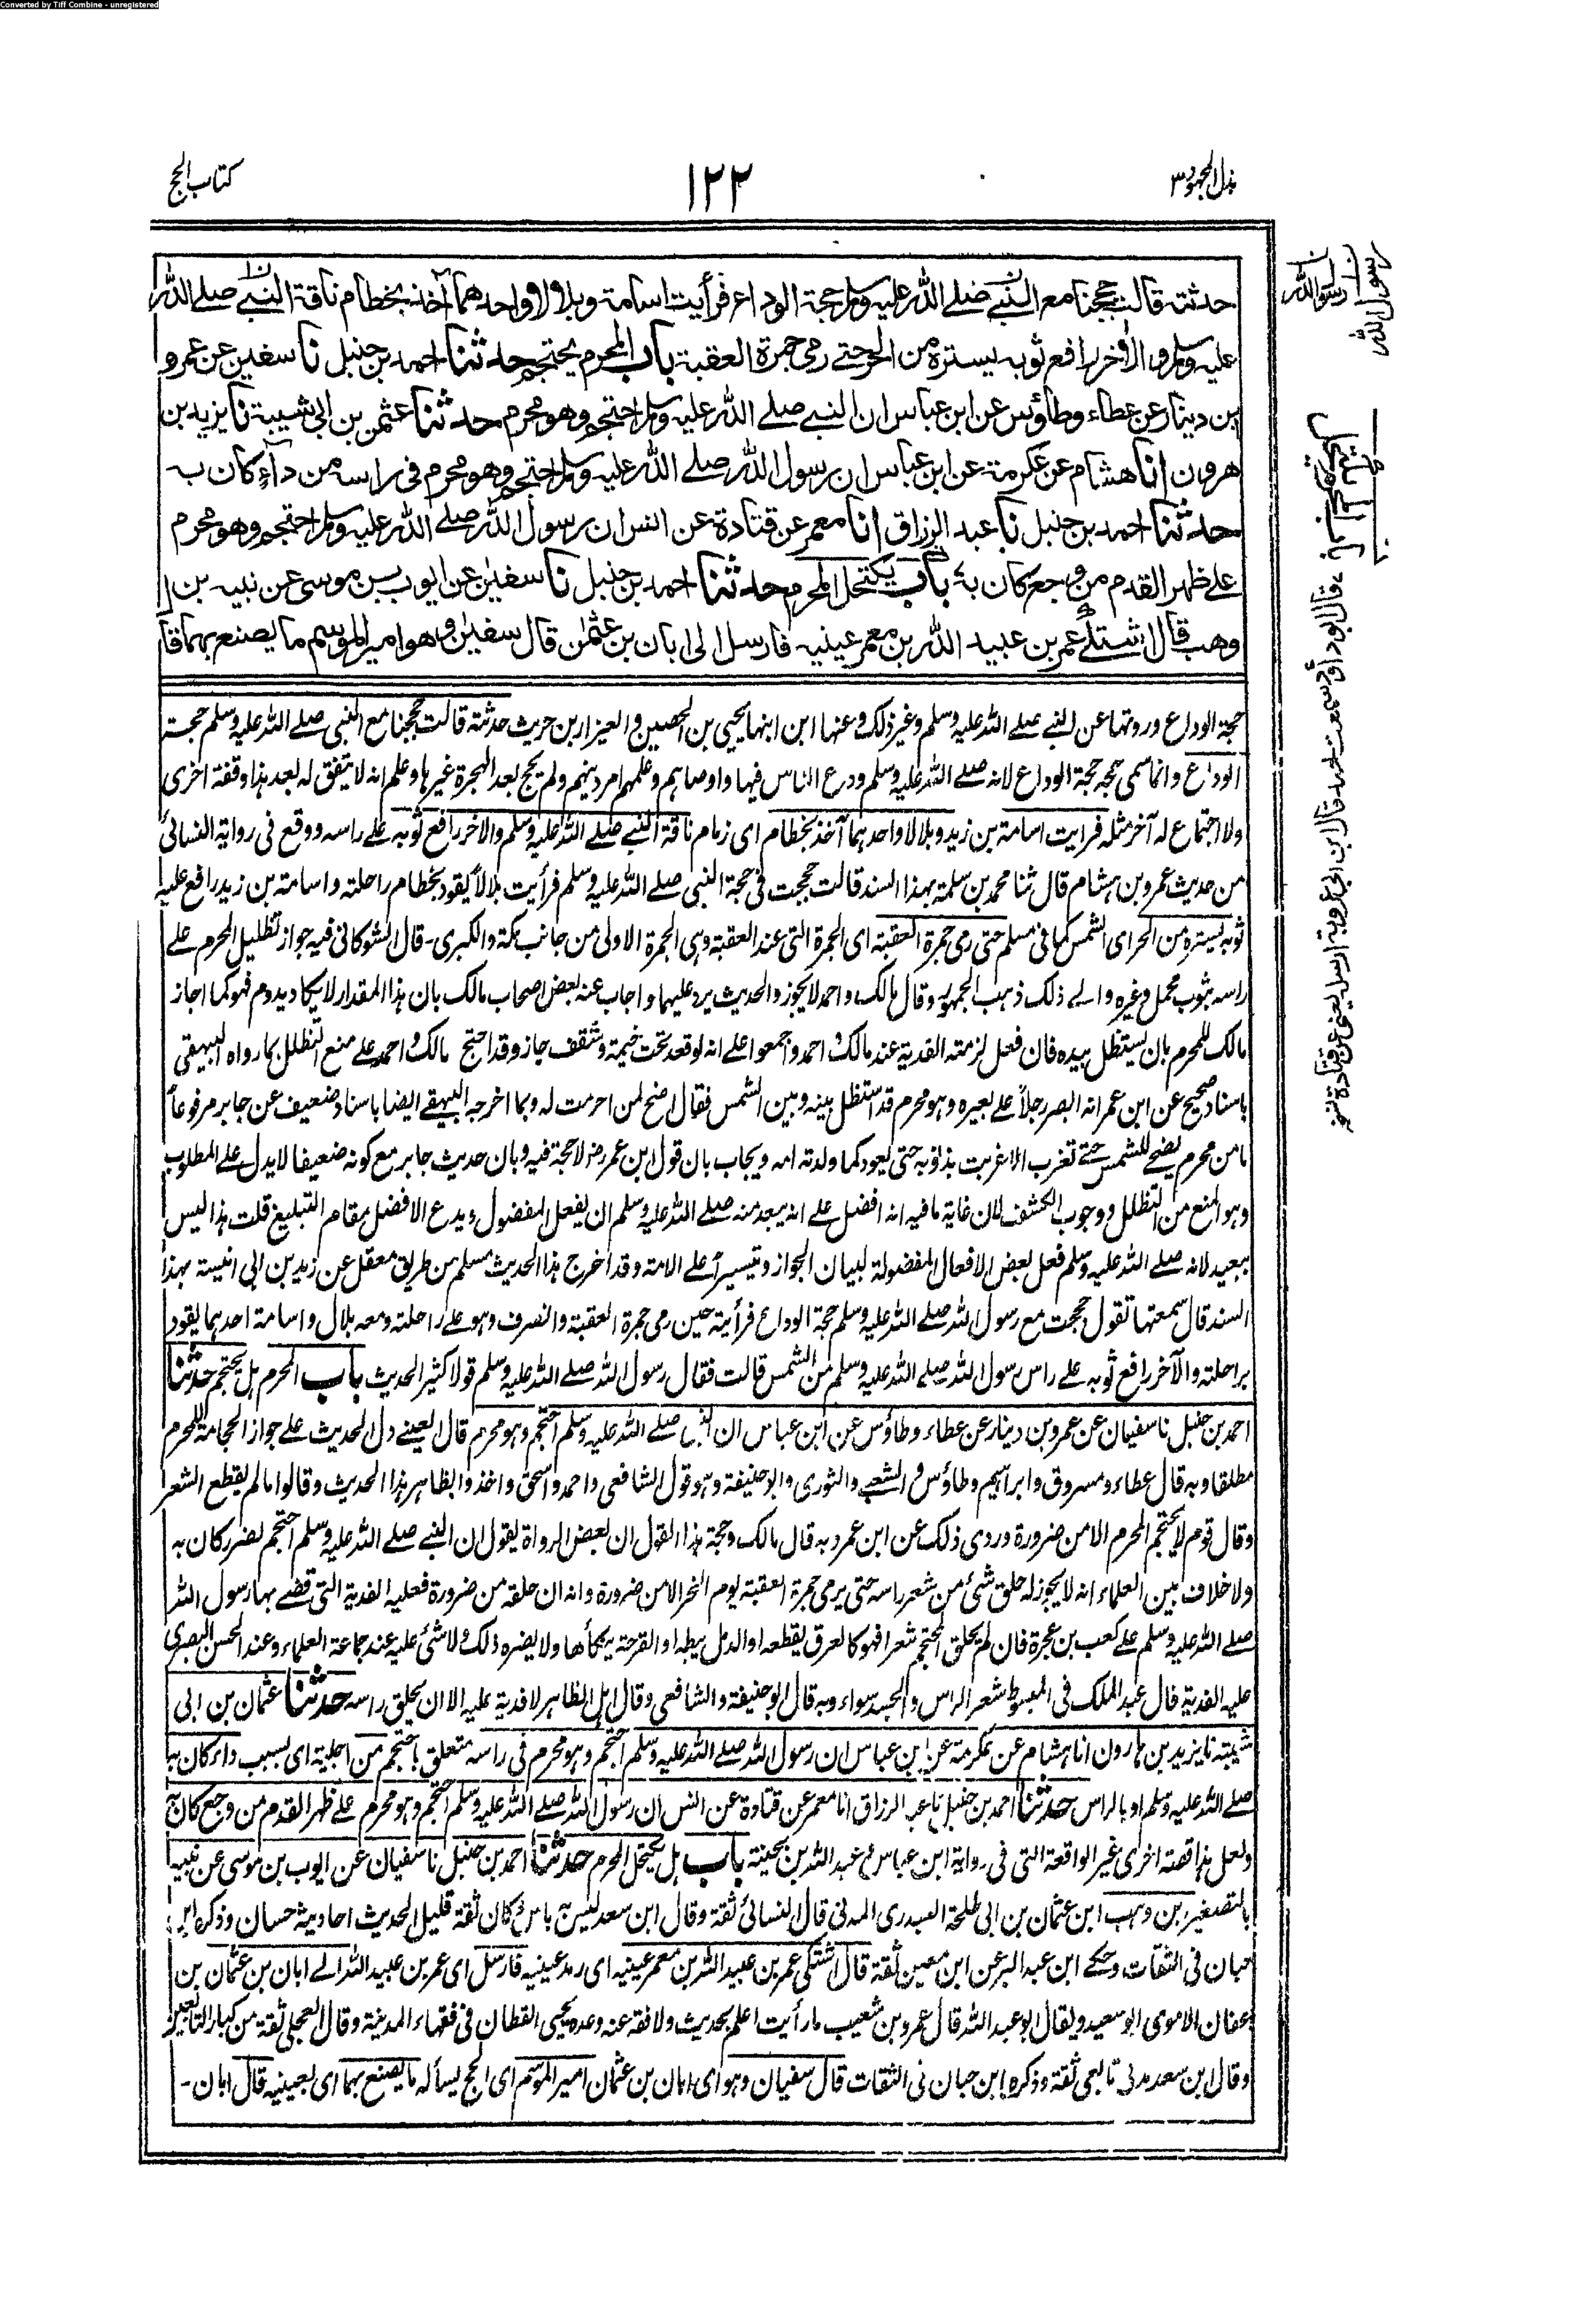 Converted by Tiff Combine - unregistered
بذل المجهود ٣
١٢٢
كتاب الحج
حدثته قالت حججنا مع النبي صلى الله عليه وسلم حجة الوداع فرأيت اسامة وبلالا واحدهما آخذ بخطام ناقة النبي صلى الله
عليه وسلم والآخر رافع ثوبه يستره من الحر حتى رمى جمرة العقبة باب المحرم يحتجم حدثنا احمد بن حنبل نا سفين عن عمرو
بن دينار عن عطاء وطاؤس عن ابن عباس ان النبي صلى الله عليه وسلم احتجم وهو محرم حدثنا عثمن بن ابي شيبة نا يزيد بن
هرون انا هشام عن عكرمة عن ابن عباس ان رسول الله صلى الله عليه وسلم احتجم وهو محرم في راسه من داء كان به
حدثنا احمد بن حنبل نا عبد الرزاق انا معمر عن قتادة عن انس ان رسول الله صلى الله عليه وسلم احتجم وهو محرم
على ظهر القدم من وجع كان به باب يكتحل المحرم حدثنا احمد بن حنبل نا سفين عن ايوب بن موسى عن نبيه بن
وهب قال اشتكى عمر بن عبيد الله بن معمر عينيه فارسل الى ابان بن عثمن قال سفين وهو امير الموسم ما يصنع بهما قا
حجة الوداع وروتها عن النبي صلى الله عليه وسلم وغير ذلك وعنها ابن ابنها يحيى بن الحصين والعيزار بن حريث حدثته قالت حججنا مع النبي صلى الله عليه وسلم حجة
الوداع وانما سمى حجه حجة الوداع لانه صلى الله عليه وسلم ودع الناس فيها واوصاهم وعلمهم امر دينهم ولم يحج بعد الهجرة غيرها وعلم انه لا يتفق له بعد هذا وقفة اخرى
ولا اجتماع له آخر مثله فرايت اسامة بن زيد وبلالا واحدهما آخذ بخطام اى زمام ناقة النبي صلى الله عليه وسلم والآخر رافع ثوبه على راسه ووقع في رواية النسائى
من حديث عمرو بن هشام قال ثنا محمد بن سلمة بهذا السند قالت حججت في حجة النبي صلى الله عليه وسلم فرأيت بلالا يقود بخطام راحلته واسامة بن زيد رافع عليه
ثوبه يستره من الحر اى الشمس كما في مسلم حتى رمى جمرة العقبة اى الجمرة التى عند العقبة وهى الجمرة الاولى من جانب مكة والكبرى - قال الشوكانى فيه جواز تظليل المحرم على
راسه بثوب محمل وغيره والى ذلك ذهب الجمهور وقال مالك واحمد لا يجوز والحديث يرد عليهما واجاب عنه بعض اصحاب مالك بان هذا المقدار لا يكاد يدوم فهو كما اجاز
مالك للمحرم بان يستظل بيده فان فعل لزمته الفدية عند مالك واحمد واجمعوا على انه لو قعد تحت خيمة وسقف جاز وقد احتج مالك واحمد على منع التظلل بما رواه البيهقى
باسناد صحيح عن ابن عمر انه ابصر رجلا على بعيره وهو محرم قد استظل بينه وبين الشمس فقال اضح لمن احرمت له وبما اخرجه البيهقى ايضا باسناد ضعيف عن جابر مرفوعا
ما من محرم يضحى للشمس حتى تغرب الا غربت بذنوبه حتى يعود كما ولدته امه ويجاب بان قول ابن عمر رض لا حجة فيه وبان حديث جابر مع كونه ضعيفا لا يدل على المطلوب
وهو المنع من التظلل ووجوب الكشف لان غاية ما فيه انه افضل على انه يبعد منه صلى الله عليه وسلم ان يفعل المفضول ويدع الافضل بمقام التبليغ قلت هذا ليس
ببعيد لانه صلى الله عليه وسلم فعل بعض الافعال المفضولة لبيان الجواز وتيسيرا على الامة وقد اخرج هذا الحديث مسلم من طريق معقل عن زيد بن ابي انيسة بهذا
السند قال سمعتها تقول حججت مع رسول الله صلى الله عليه وسلم حجة الوداع فرأيته حين رمى جمرة العقبة وانصرف وهو على راحلته ومعه بلال واسامة احدهما يقود
براحلته والآخر رافع ثوبه على راس رسول الله صلى الله عليه وسلم من الشمس قالت فقال رسول الله صلى الله عليه وسلم قولا كثيرا الحديث باب المحرم هل يحتجم حدثنا
احمد بن حنبل نا سفيان عن عمرو بن دينار عن عطاء وطاؤس عن ابن عباس ان النبي صلى الله عليه وسلم احتجم وهو محرم قال العينى دل الحديث على جواز الحجامة للمحرم
مطلقا وبه قال عطاء ومسروق وابراهيم وطاؤس والشعبى والثورى وابو حنيفة وهو قول الشافعى واحمد واسحق واخذوا بظاهر هذا الحديث وقالوا ما لم يقطع الشعر
وقال قوم لا يحتجم المحرم الا من ضرورة وروى ذلك عن ابن عمر وبه قال مالك وحجة هذا القول ان بعض الرواة يقول ان النبي صلى الله عليه وسلم احتجم لضرر كان به
ولا خلاف بين العلماء انه لا يجوز له حلق شئ من شعر راسه حتى يرمى جمرة العقبة يوم النحر الا من ضرورة وانه ان حلقه من ضرورة فعليه الفدية التى قضى بها رسول الله
صلى الله عليه وسلم على كعب بن عجرة فان لم يحلق المحتجم شعرا فهو كالعرق يقطعه او الدمل يبطه او القرحة ينكأها ولا يضره ذلك ولا شئ عليه عند جماعة العلماء وعند الحسن البصرى
عليه الفدية قال عبد الملك في المبسوط شعر الراس والجسد سواء وبه قال ابو حنيفة والشافعى وقال اهل الظاهر لا فدية عليه الا ان يحلق راسه حدثنا عثمان بن ابى
شيبة نا يزيد بن هارون انا هشام عن عكرمة عن ابن عباس ان رسول الله صلى الله عليه وسلم احتجم وهو محرم في راسه متعلق باحتجم من اجلية اى بسبب داء كان به
صلى الله عليه وسلم او بالراس حدثنا احمد بن حنبل نا عبد الرزاق انا معمر عن قتادة عن انس ان رسول الله صلى الله عليه وسلم احتجم وهو محرم على ظهر القدم من وجع كان به
ولعل هذا قصة اخرى غير الواقعة التى في رواية ابن عباس وعبد الله بن بحينة باب هل يكتحل المحرم حدثنا احمد بن حنبل نا سفيان عن ايوب بن موسى عن نبيه
بالتصغير بن وهب ابن عثمان بن ابى طلحة العبدرى المدنى قال النسائى ثقة وقال ابن سعد ليس به باس وكان ثقة قليل الحديث احاديثه حسان وذكره ابن
حبان في الثقات وحكى ابن عبد البر عن ابن معين ثقة قال اشتكى عمر بن عبيد الله بن معمر عينيه اى رمد عينيه فارسل اى عمر بن عبيد الله الى ابان بن عثمان بن
عفان الاموى ابو سعيد ويقال ابو عبد الله قال عمرو بن شعيب ما رأيت اعلم بحديث ولا فقه عنه وعده يحيى القطان في فقهاء المدينة وقال العجلى ثقة من كبار التابعين
وقال ابن سعد مدنى تابعى ثقة وذكره ابن حبان في الثقات قال سفيان وهو اى ابان بن عثمان امير الموسم اى الحج يسأله ما يصنع بهما اى بعينيه قال ابان -
رسول الله
رسول الله
قال ابو داؤد سمعت احمد قال ابن ابي عروبة ارسله يعنى عن قتادة